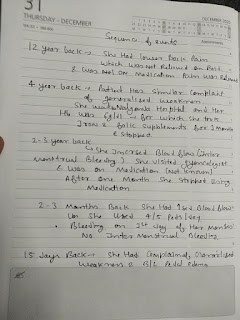 31
THURSDAY - DECEMBER
DECEMBER
Sequence of events
12 year back → She Had lower back Pain
which was not Relieved on Rest
& was not on Medication Pain was Relieved
4 year back → Patient Has Similar Complaint
of generalised weakness.
She was Nalgonda Hospital and Her
Hb was 6g/dl → for which She took
Iron & folic supplements for 1 Month
& stopped
2-3 year back
↳ She Incresed Blood flow (Inter
menstrual Bleeding) She visited gynecologist
& was on Medication (not known)
After one Month She stopped Using
Medication
2-3 Months Back She Had Blood flow
She Used 4/5 Pads/day
• Bleeding on 1st day of Her Menses
No Inter Menstrual Bleeding
15 days Back → She Had Complained Generalised
Weakness & B/L Pedal Edema